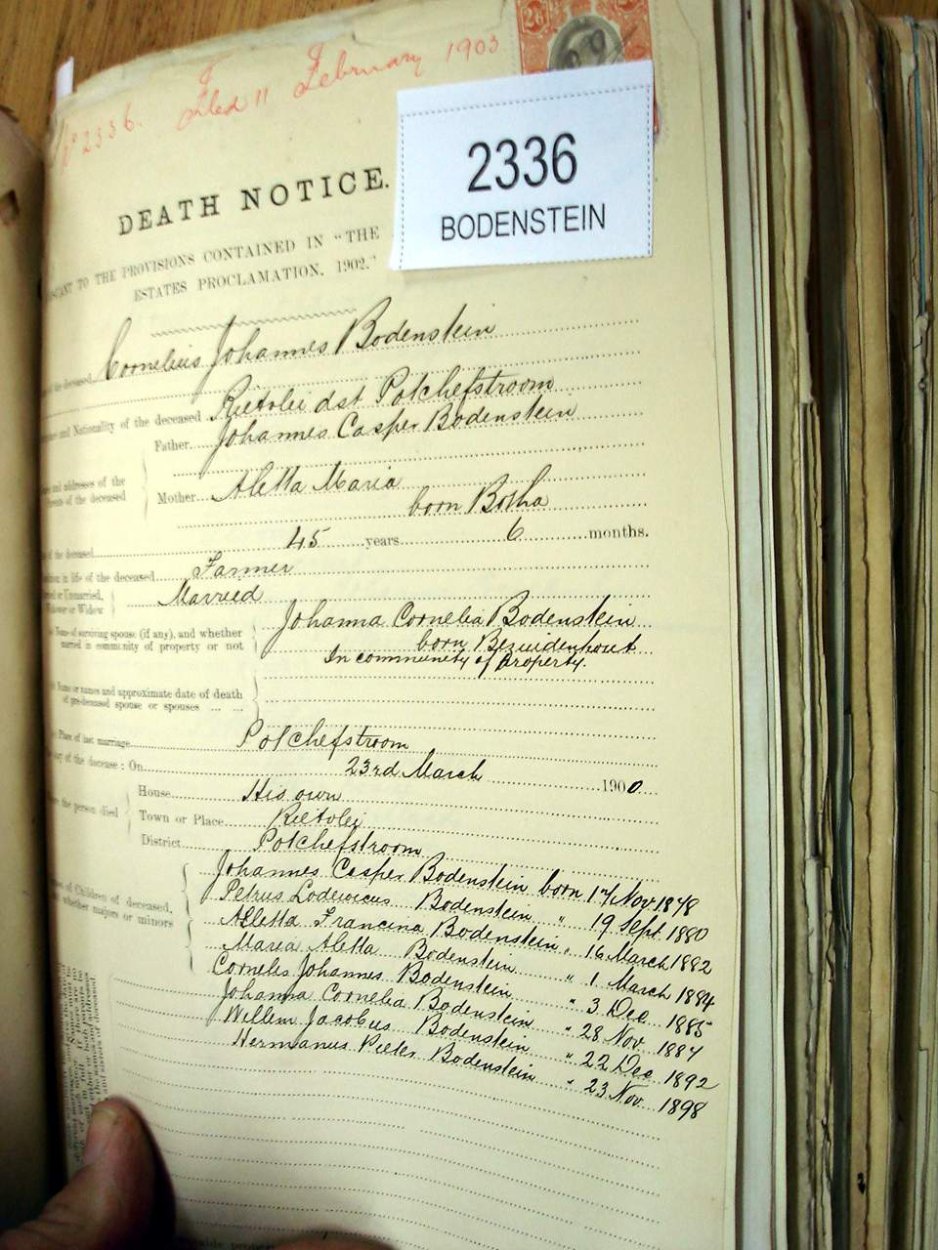 No 2336. Filed 11 February 1903
2/6
2336
BODENSTEIN
DEATH NOTICE.
TO THE PROVISIONS CONTAINED IN "THE
ESTATES PROCLAMATION, 1902."
the deceased Cornelius Johannes Bodenstein
and Nationality of the deceased Rietvlei dst Potchefstroom
Father Johannes Casper Bodenstein
and addresses of the
of the deceased
Mother Aletta Maria
born Botha
of the deceased 45 years 6 months.
in life of the deceased Farmer
or Unmarried,
or Widow Married
Name of surviving spouse (if any), and whether
married in community of property or not
Johanna Cornelia Bodenstein
born Bezuidenhout
In community of Property
Name or names and approximate date of death
of pre-deceased spouse or spouses ... ...
Place of last marriage Potchefstroom
of the decease: On 23rd March 1900
the person died
House His own
Town or Place Rietvlei
District Potchefstroom
of Children of deceased,
whether majors or minors
Johannes Casper Bodenstein born 17 Nov 1878
Petrus Lodewicus Bodenstein " 19 Sept. 1880
Alletta Francina Bodenstein " 16 March 1882
Maria Aletta Bodenstein " 1 March 1884
Cornelis Johannes Bodenstein " 3 Dec 1885
Johanna Cornelia Bodenstein " 28 Nov 1887
Willem Jacobus Bodenstein " 22 Dec 1892
Hermanus Pieter Bodenstein " 23 Nov 1898